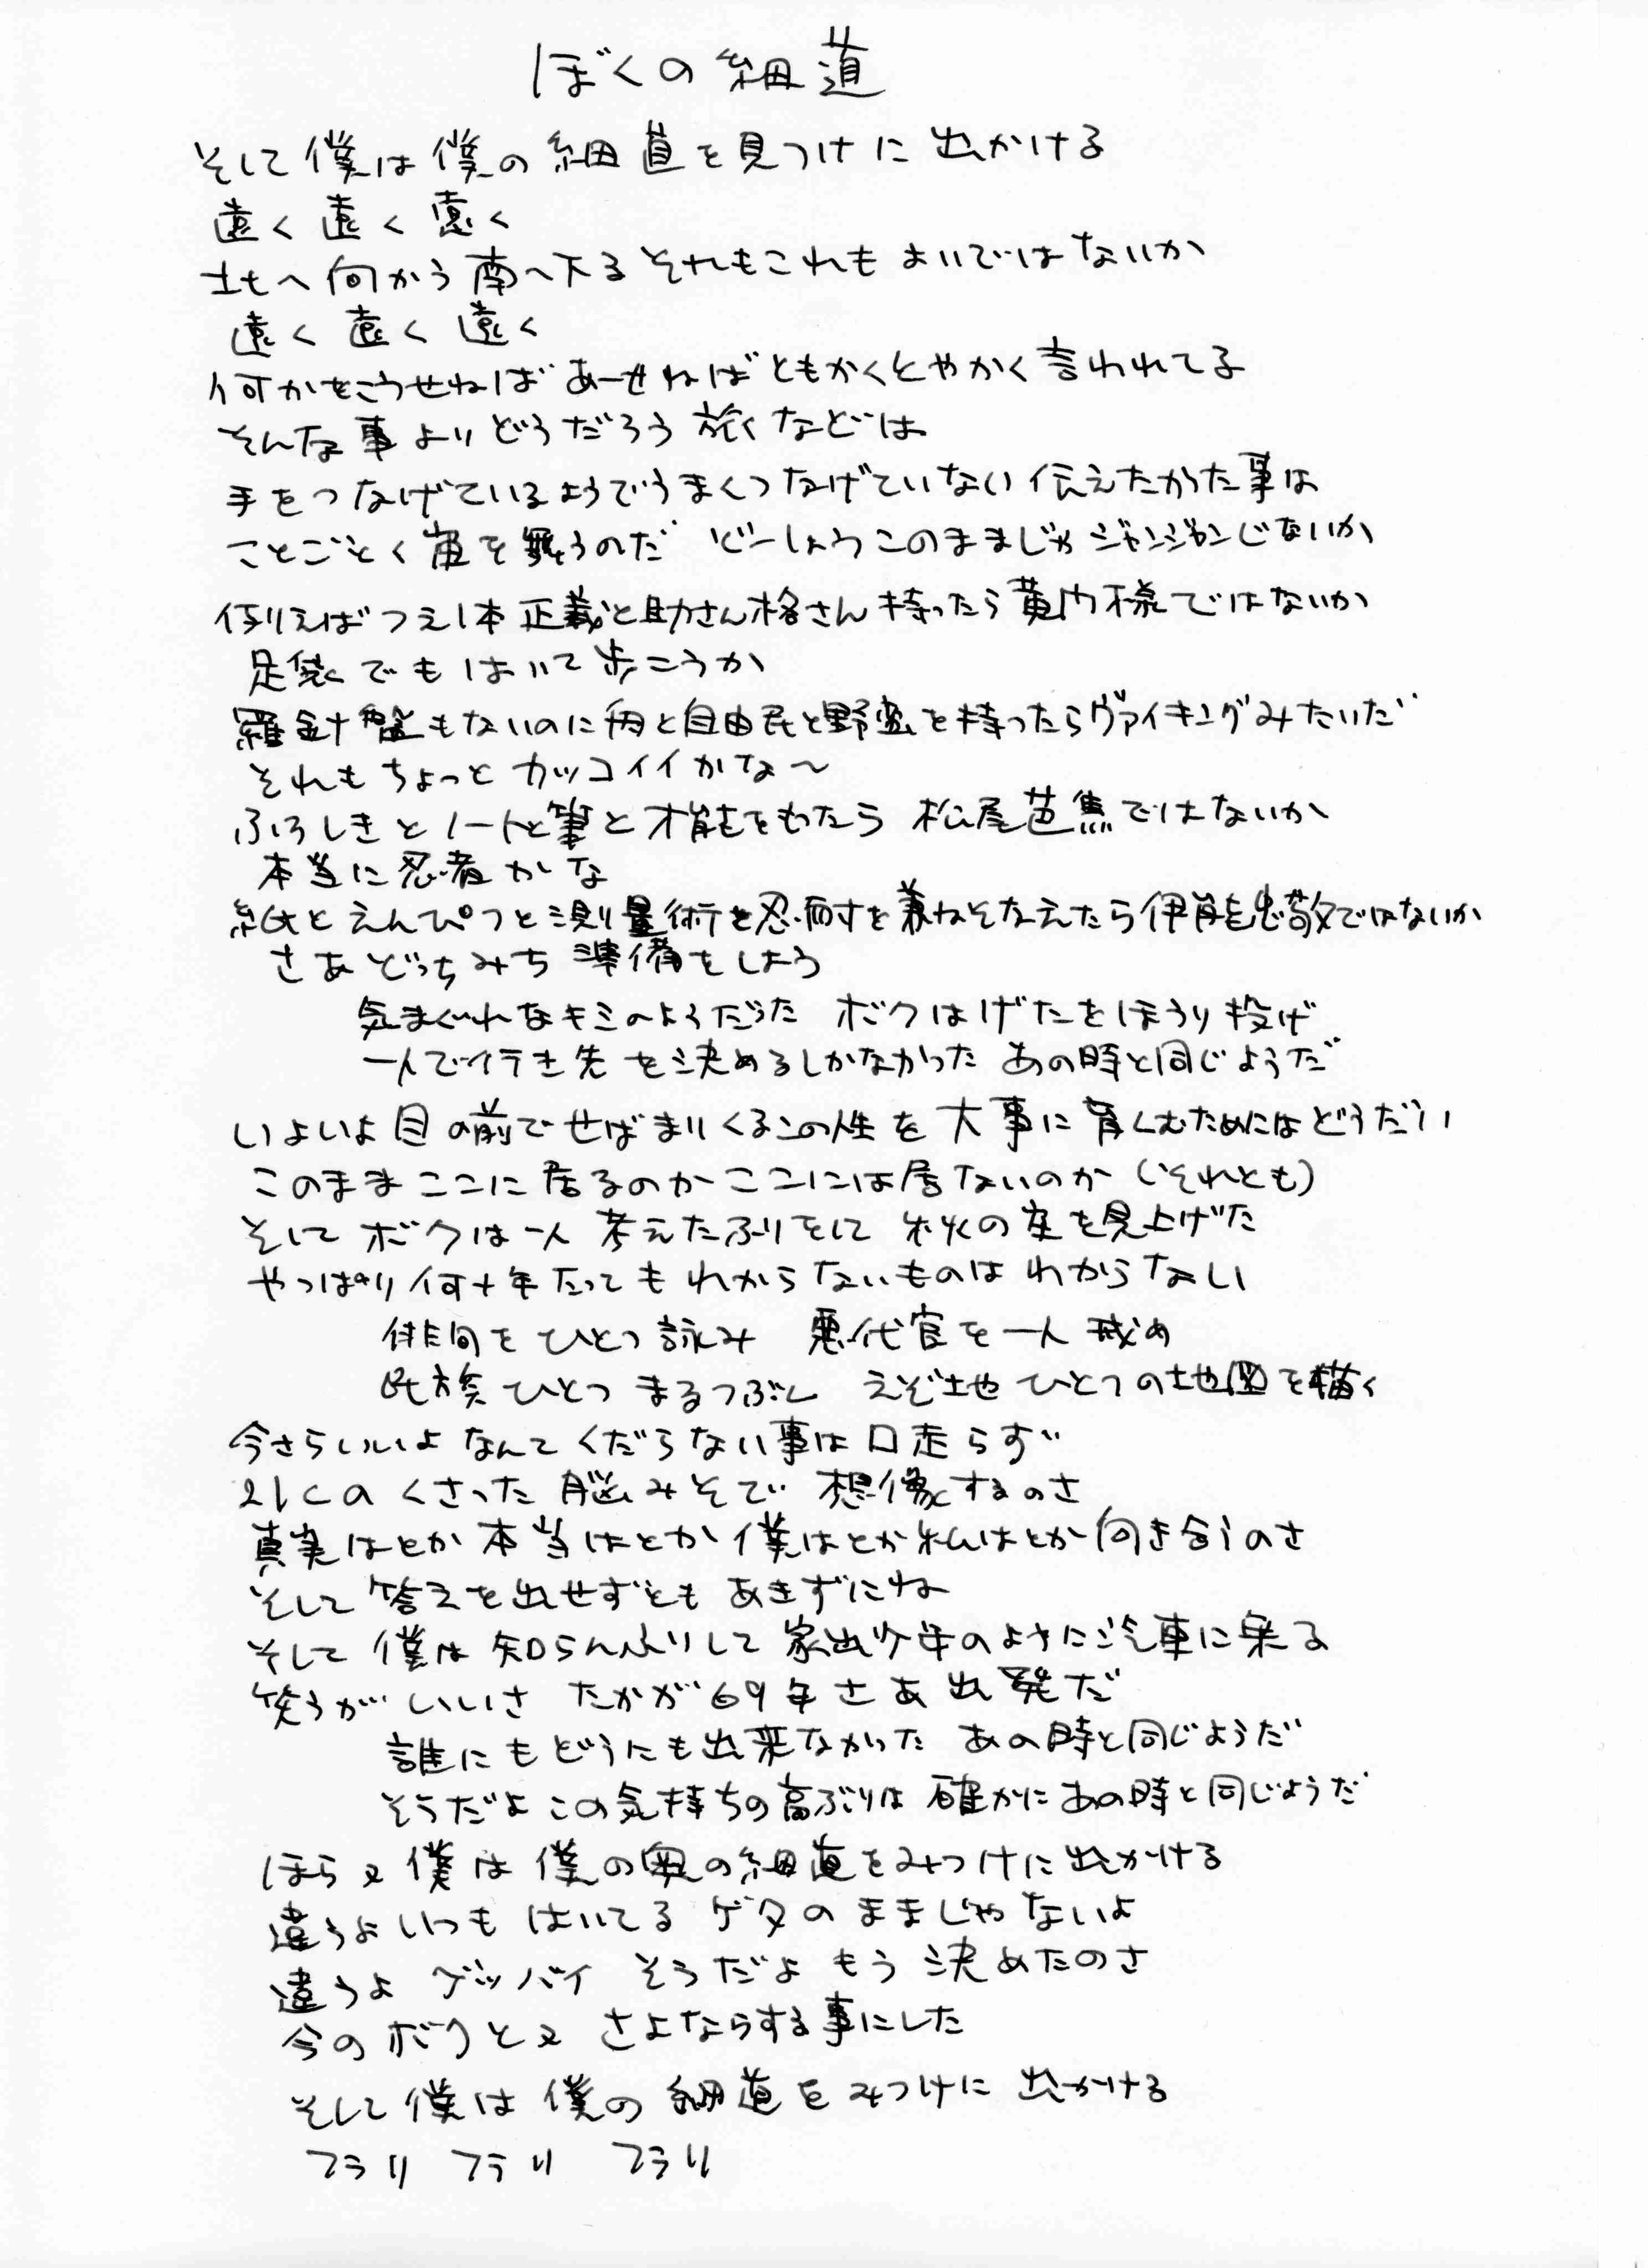 ぼくの細道
そして僕は僕の細道を見つけに出かける
遠く遠く遠く
北へ向かう南へ下るそれもこれもよいではないか
遠く遠く遠く
何かをこうせねばあーせねばともかくとやかく言われてる
そんな事よりどうだろう旅などは
手をつなげているようでうまくつなげていない伝えたかった事は
ことごとく宙を舞うのだ どーしようこのままじゃジャンジャンじないか
例えばつえ1本正義と助さん格さん持ったら黄門様ではないか
足袋でもはいて歩こうか
羅針盤もないのに舟と自由民と野蛮を持ったらヴァイキングみたいだ
それもちょっとカッコイイかな〜
ふろしきとノートと筆と才能をもたら 松尾芭蕉ではないか
本当に忍者かな
紙とえんぴつと測量術を忍耐を兼ねそなえたら伊能忠敬ではないか
さあどっちみち準備をしよう
気まぐれなキミのようだった ボクはげたをほうり投げ
一人で行き先を決めるしかなかった あの時と同じようだ
いよいよ目の前でせばまりくるこの性を大事に育くむためにはどうだい
このままここに居るのかここには居ないのか(それとも)
そしてボクは一人 考えたふりをして 秋の空を見上げた
やっぱり何十年たってもわからないものはわからない
俳句をひとつ詠み 悪代官を一人戒め
民族ひとつまるつぶし えぞ地ひとつの地図を描く
今さらいいよなんてくだらない事は口走らず
21Cのくさった脳みそで想像するのさ
真実はとか本当はとか僕はとか私はとか向き合うのさ
そして答えを出せずともあきずにね
そして僕は知らんふりして家出少年のように汽車に乗る
笑うがいいさ たかが69年さあ出発だ
誰にもどうにも出来なかった あの時と同じようだ
そうだよこの気持ちの高ぶりは確かにあの時と同じようだ
ほら又僕は僕の奥の細道をみつけに出かける
違うよいつもはいてるゲタのままじゃないよ
違うよ グッバイ そうだよもう決めたのさ
今のボクと又さよならする事にした
そして僕は僕の細道をみつけに出かける
フラリ フラリ フラリ